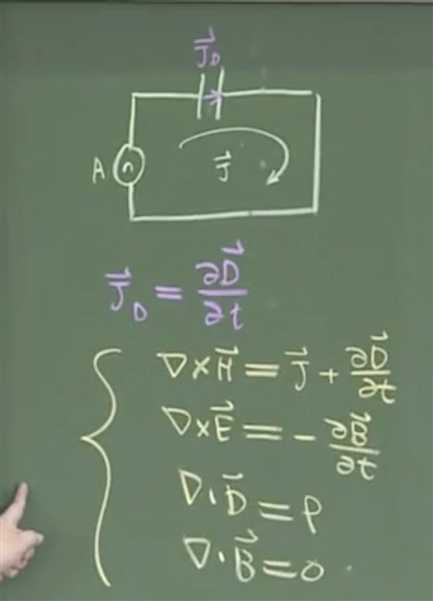 J⃗_D
A
J⃗
J⃗_D = ∂D⃗/∂t
∇×H⃗ = J⃗ + ∂D⃗/∂t
∇×E⃗ = - ∂B⃗/∂t
∇·D⃗ = ρ
∇·B⃗ = 0